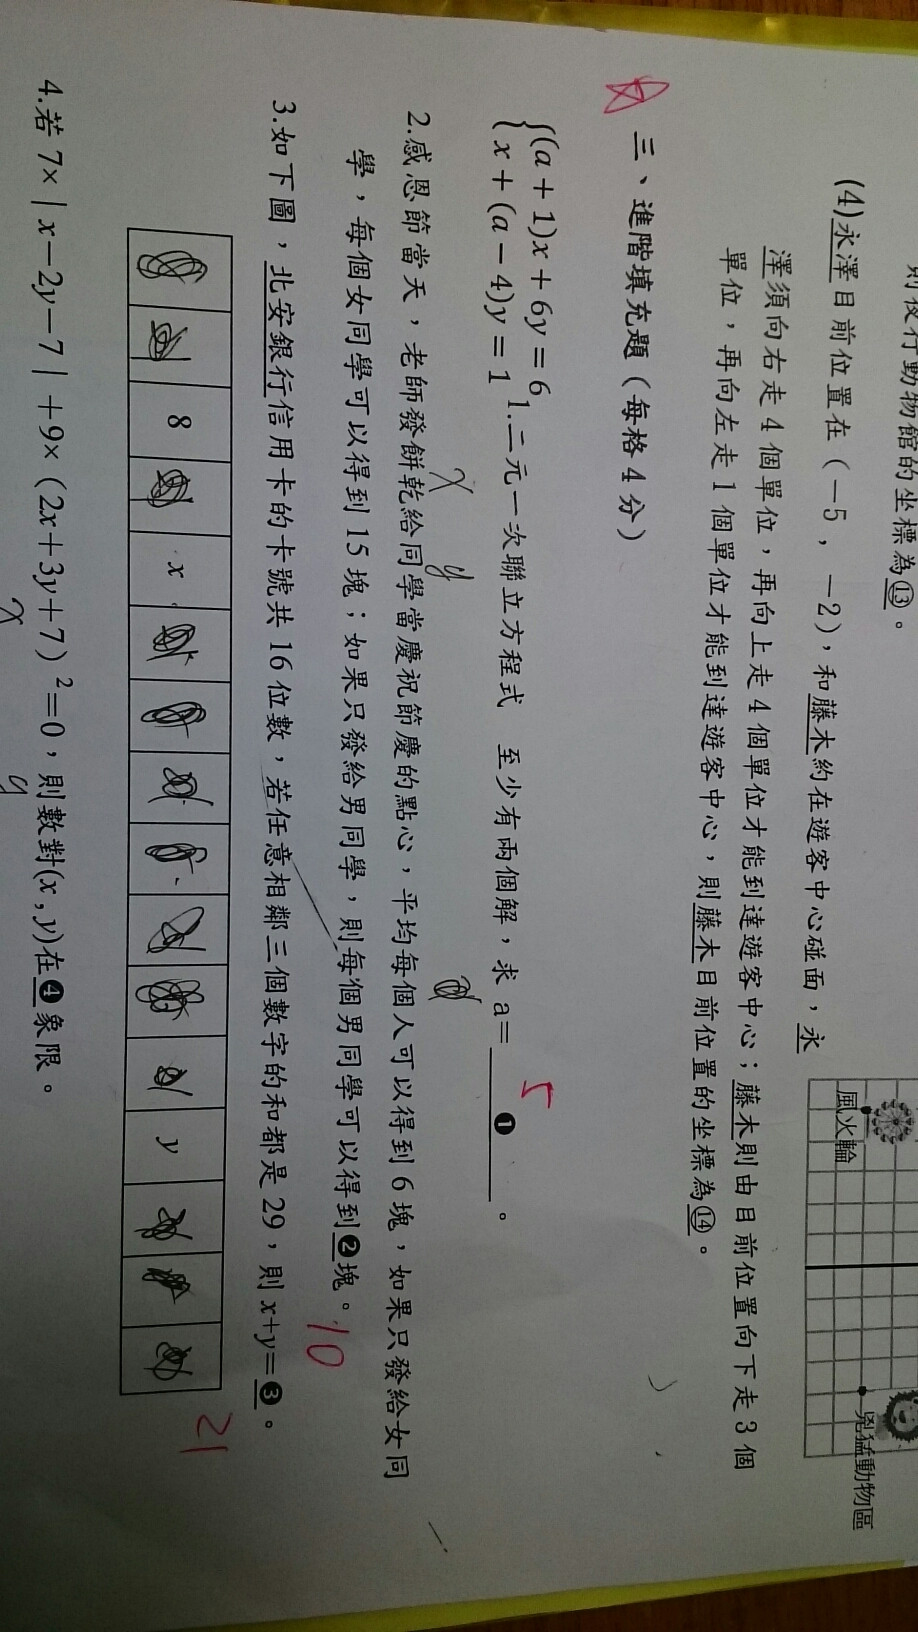 則從行動物館的坐標為⑬。
(4)永澤目前位置在(-5，-2)，和藤木約在遊客中心碰面，永
澤須向右走4個單位，再向上走4個單位才能到達遊客中心；藤木則由目前位置向下走3個
單位，再向左走1個單位才能到達遊客中心，則藤木目前位置的坐標為⑭。
風火輪
兇猛動物區
三、進階填充題(每格4分)
{(a+1)x+6y=6
{x+(a-4)y=1
1.二元一次聯立方程式 至少有兩個解，求 a=❶。
5
2.感恩節當天，老師發餅乾給同學當慶祝節慶的點心，平均每個人可以得到6塊，如果只發給女同
x
y
學，每個女同學可以得到15塊；如果只發給男同學，則每個男同學可以得到❷塊。
10
3.如下圖，北安銀行信用卡的卡號共16位數，若任意相鄰三個數字的和都是29，則x+y=❸。
8 x y
21
4.若7×|x-2y-7|+9×(2x+3y+7)²=0，則數對(x,y)在❹象限。
x
y